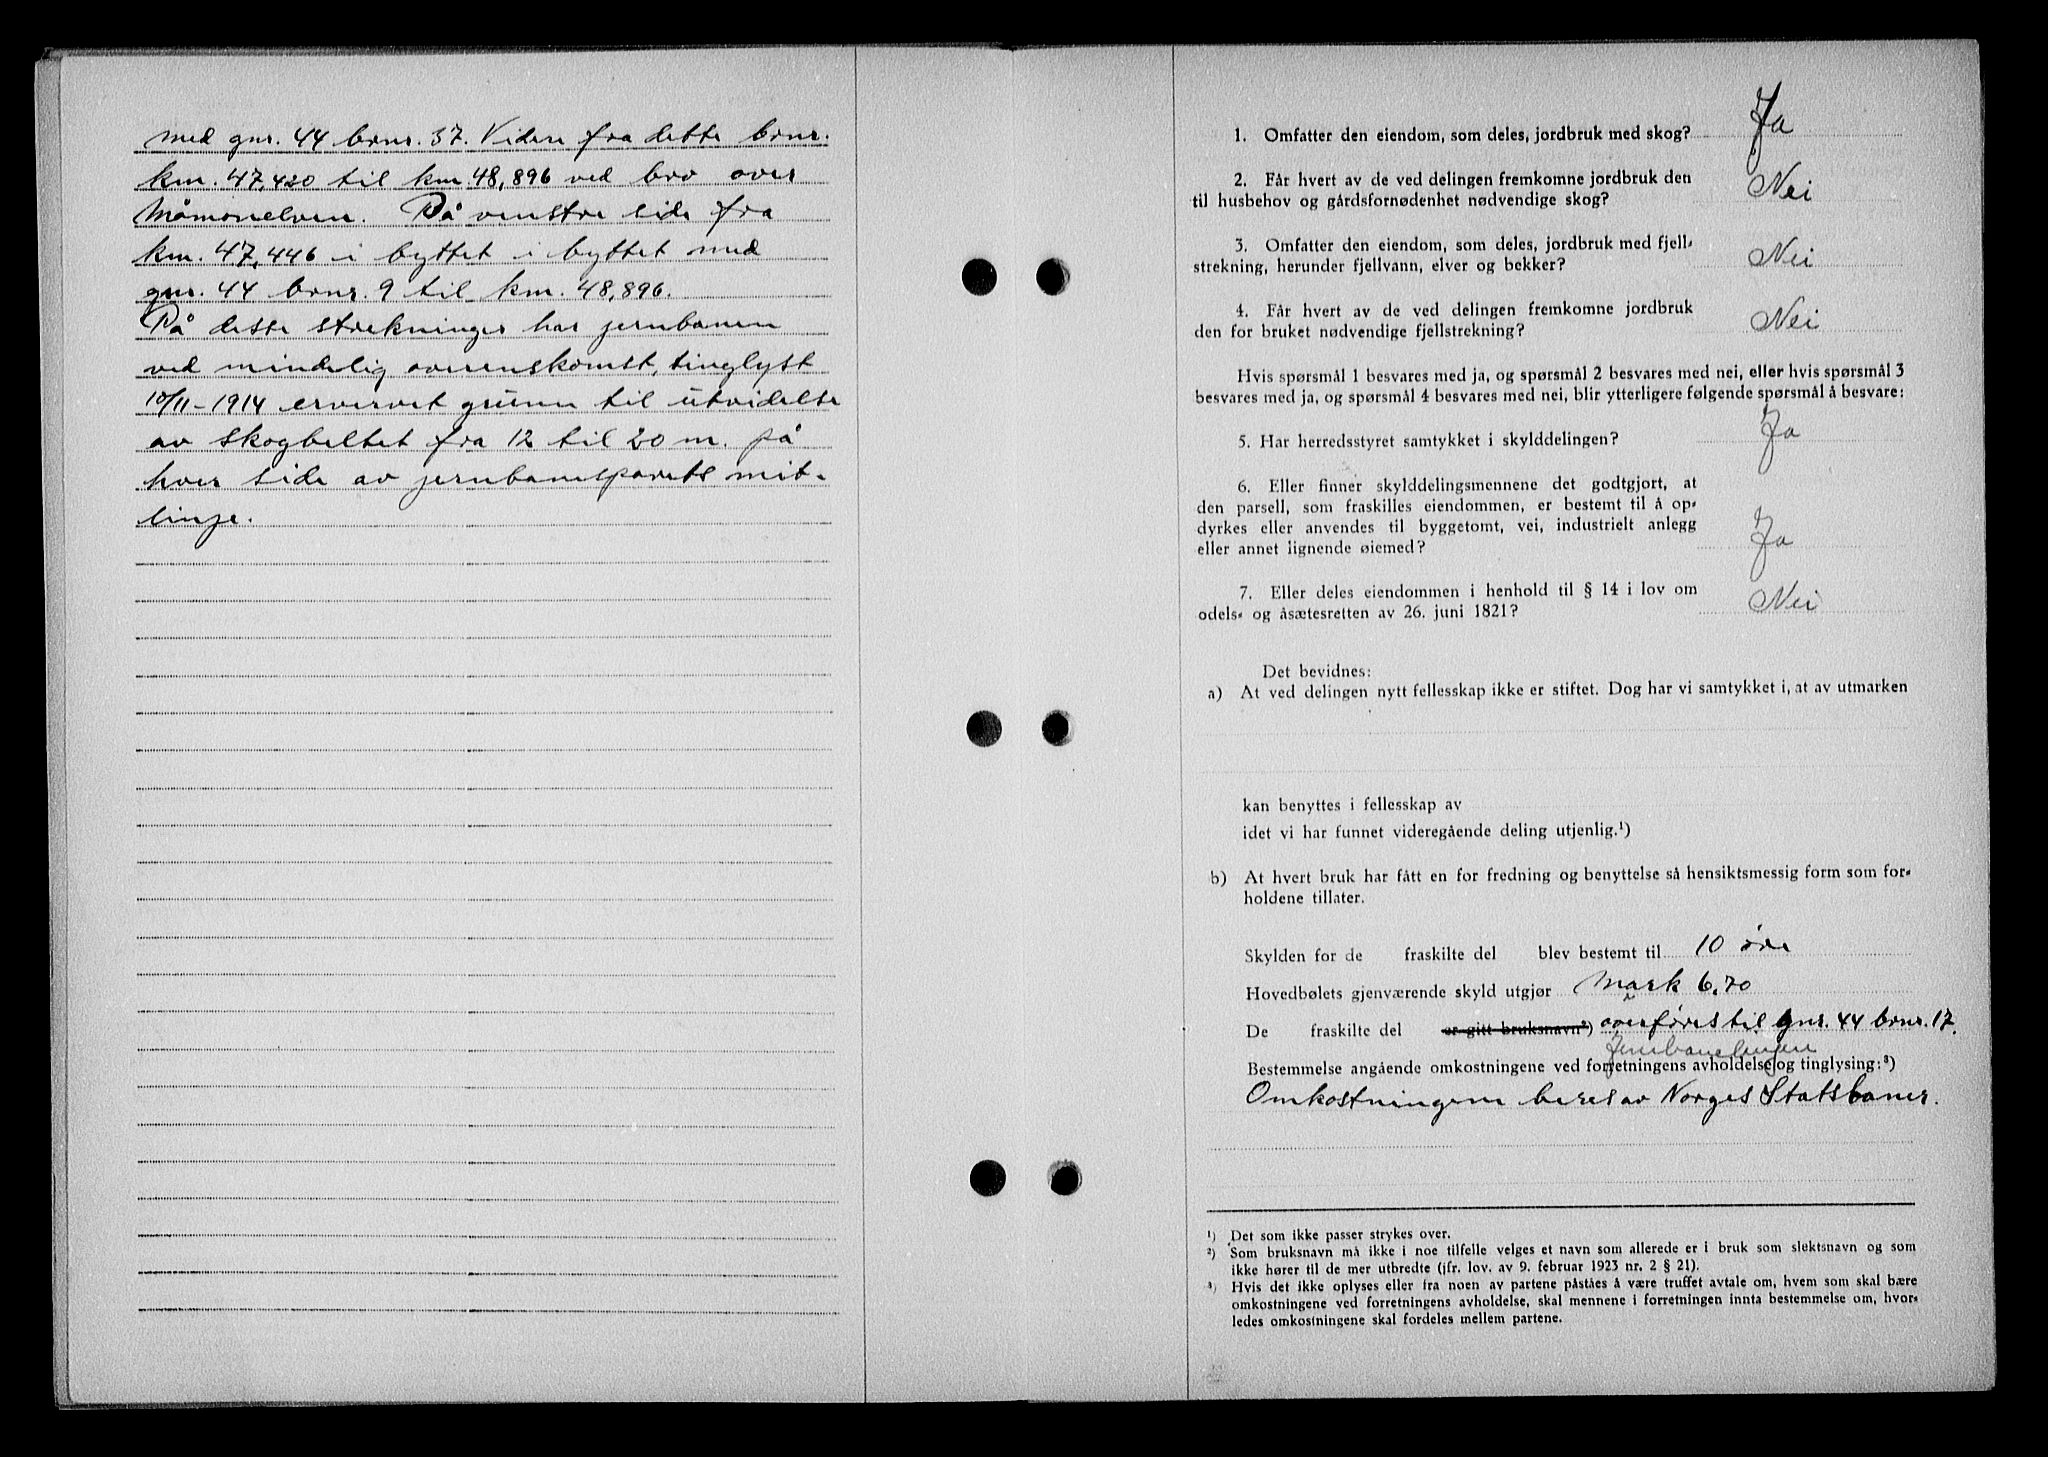 med gnr. 44 brnr. 37. Videre fra dette brnr.
km. 47,420 til km 48,896 ved bro over
Måmonelven. På venstre side fra
km. 47,446 i byttet i byttet med
gnr. 44 brnr. 9 til km. 48,896.
På disse strekninger har jernbanen
ved mindelig overenskomst, tinglyst
10/11-1914 ervervet grunn til utvidelse
av skogbeltet fra 12 til 20 m. på
hver side av jernbanesporets mit-
linje.
1. Omfatter den eiendom, som deles, jordbruk med skog? Ja
2. Får hvert av de ved delingen fremkomne jordbruk den
til husbehov og gårdsfornødenhet nødvendige skog? Nei
3. Omfatter den eiendom, som deles, jordbruk med fjell-
strekning, herunder fjellvann, elver og bekker? Nei
4. Får hvert av de ved delingen fremkomne jordbruk
den for bruket nødvendige fjellstrekning? Nei
Hvis spørsmål 1 besvares med ja, og spørsmål 2 besvares med nei, eller hvis spørsmål 3
besvares med ja, og spørsmål 4 besvares med nei, blir ytterligere følgende spørsmål å besvare:
5. Har herredsstyret samtykket i skylddelingen? Ja
6. Eller finner skylddelingsmennene det godtgjort, at
den parsell, som fraskilles eiendommen, er bestemt til å op-
dyrkes eller anvendes til byggetomt, vei, industrielt anlegg
eller annet lignende øiemed? Ja
7. Eller deles eiendommen i henhold til § 14 i lov om
odels- og åsætesretten av 26. juni 1821? Nei
Det bevidnes:
a) At ved delingen nytt fellesskap ikke er stiftet. Dog har vi samtykket i, at av utmarken
kan benyttes i fellesskap av
idet vi har funnet videregående deling utjenlig.¹)
b) At hvert bruk har fått en for fredning og benyttelse så hensiktsmessig form som for-
holdene tillater.
Skylden for de fraskilte del blev bestemt til 10 øre
Hovedbølets gjenværende skyld utgjør Mark 6,70
De fraskilte del er gitt bruksnavn²) overføres til gnr. 44 brnr. 17.
Jernbanelinjen
Bestemmelse angående omkostningene ved forretningens avholdelse og tinglysing:³)
Omkostningene beres av Norges Statsbaner.
¹) Det som ikke passer strykes over.
²) Som bruksnavn må ikke i noe tilfelle velges et navn som allerede er i bruk som slektsnavn og som
ikke hører til de mer utbredte (jfr. lov. av 9. februar 1923 nr. 2 § 21).
³) Hvis det ikke oplyses eller fra noen av partene påståes å være truffet avtale om, hvem som skal bære
omkostningene ved forretningens avholdelse, skal mennene i forretningen innta bestemmelse om, hvor-
ledes omkostningene skal fordeles mellem partene.